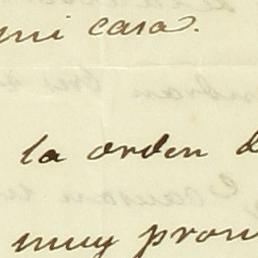 mi casa.
la orden d
muy pron